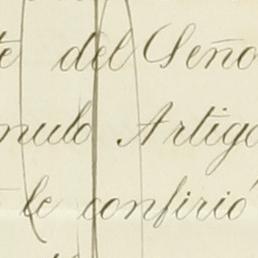 te del Seño
nulo Artiga
le confirió